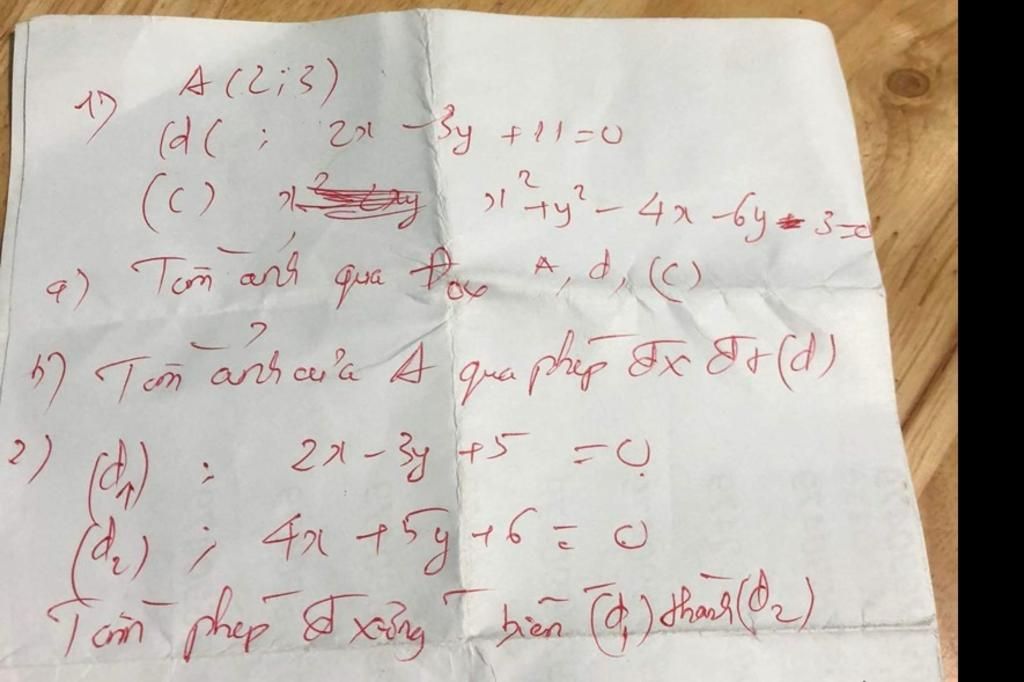 1) A (2;3)
(d( ; 2x - 3y + 11 = 0
(C) x² + y² - 4x - 6y - 3 = 0
a) Tìm ảnh qua Đox A, d, (C)
b) Tìm ảnh của A qua phép Đx Đt (d)
2) (d₁) ; 2x - 3y + 5 = 0
(d₂) ; 4x + 5y + 6 = 0
Tìm phép Đ xứng biến (d₁) thành (d₂)